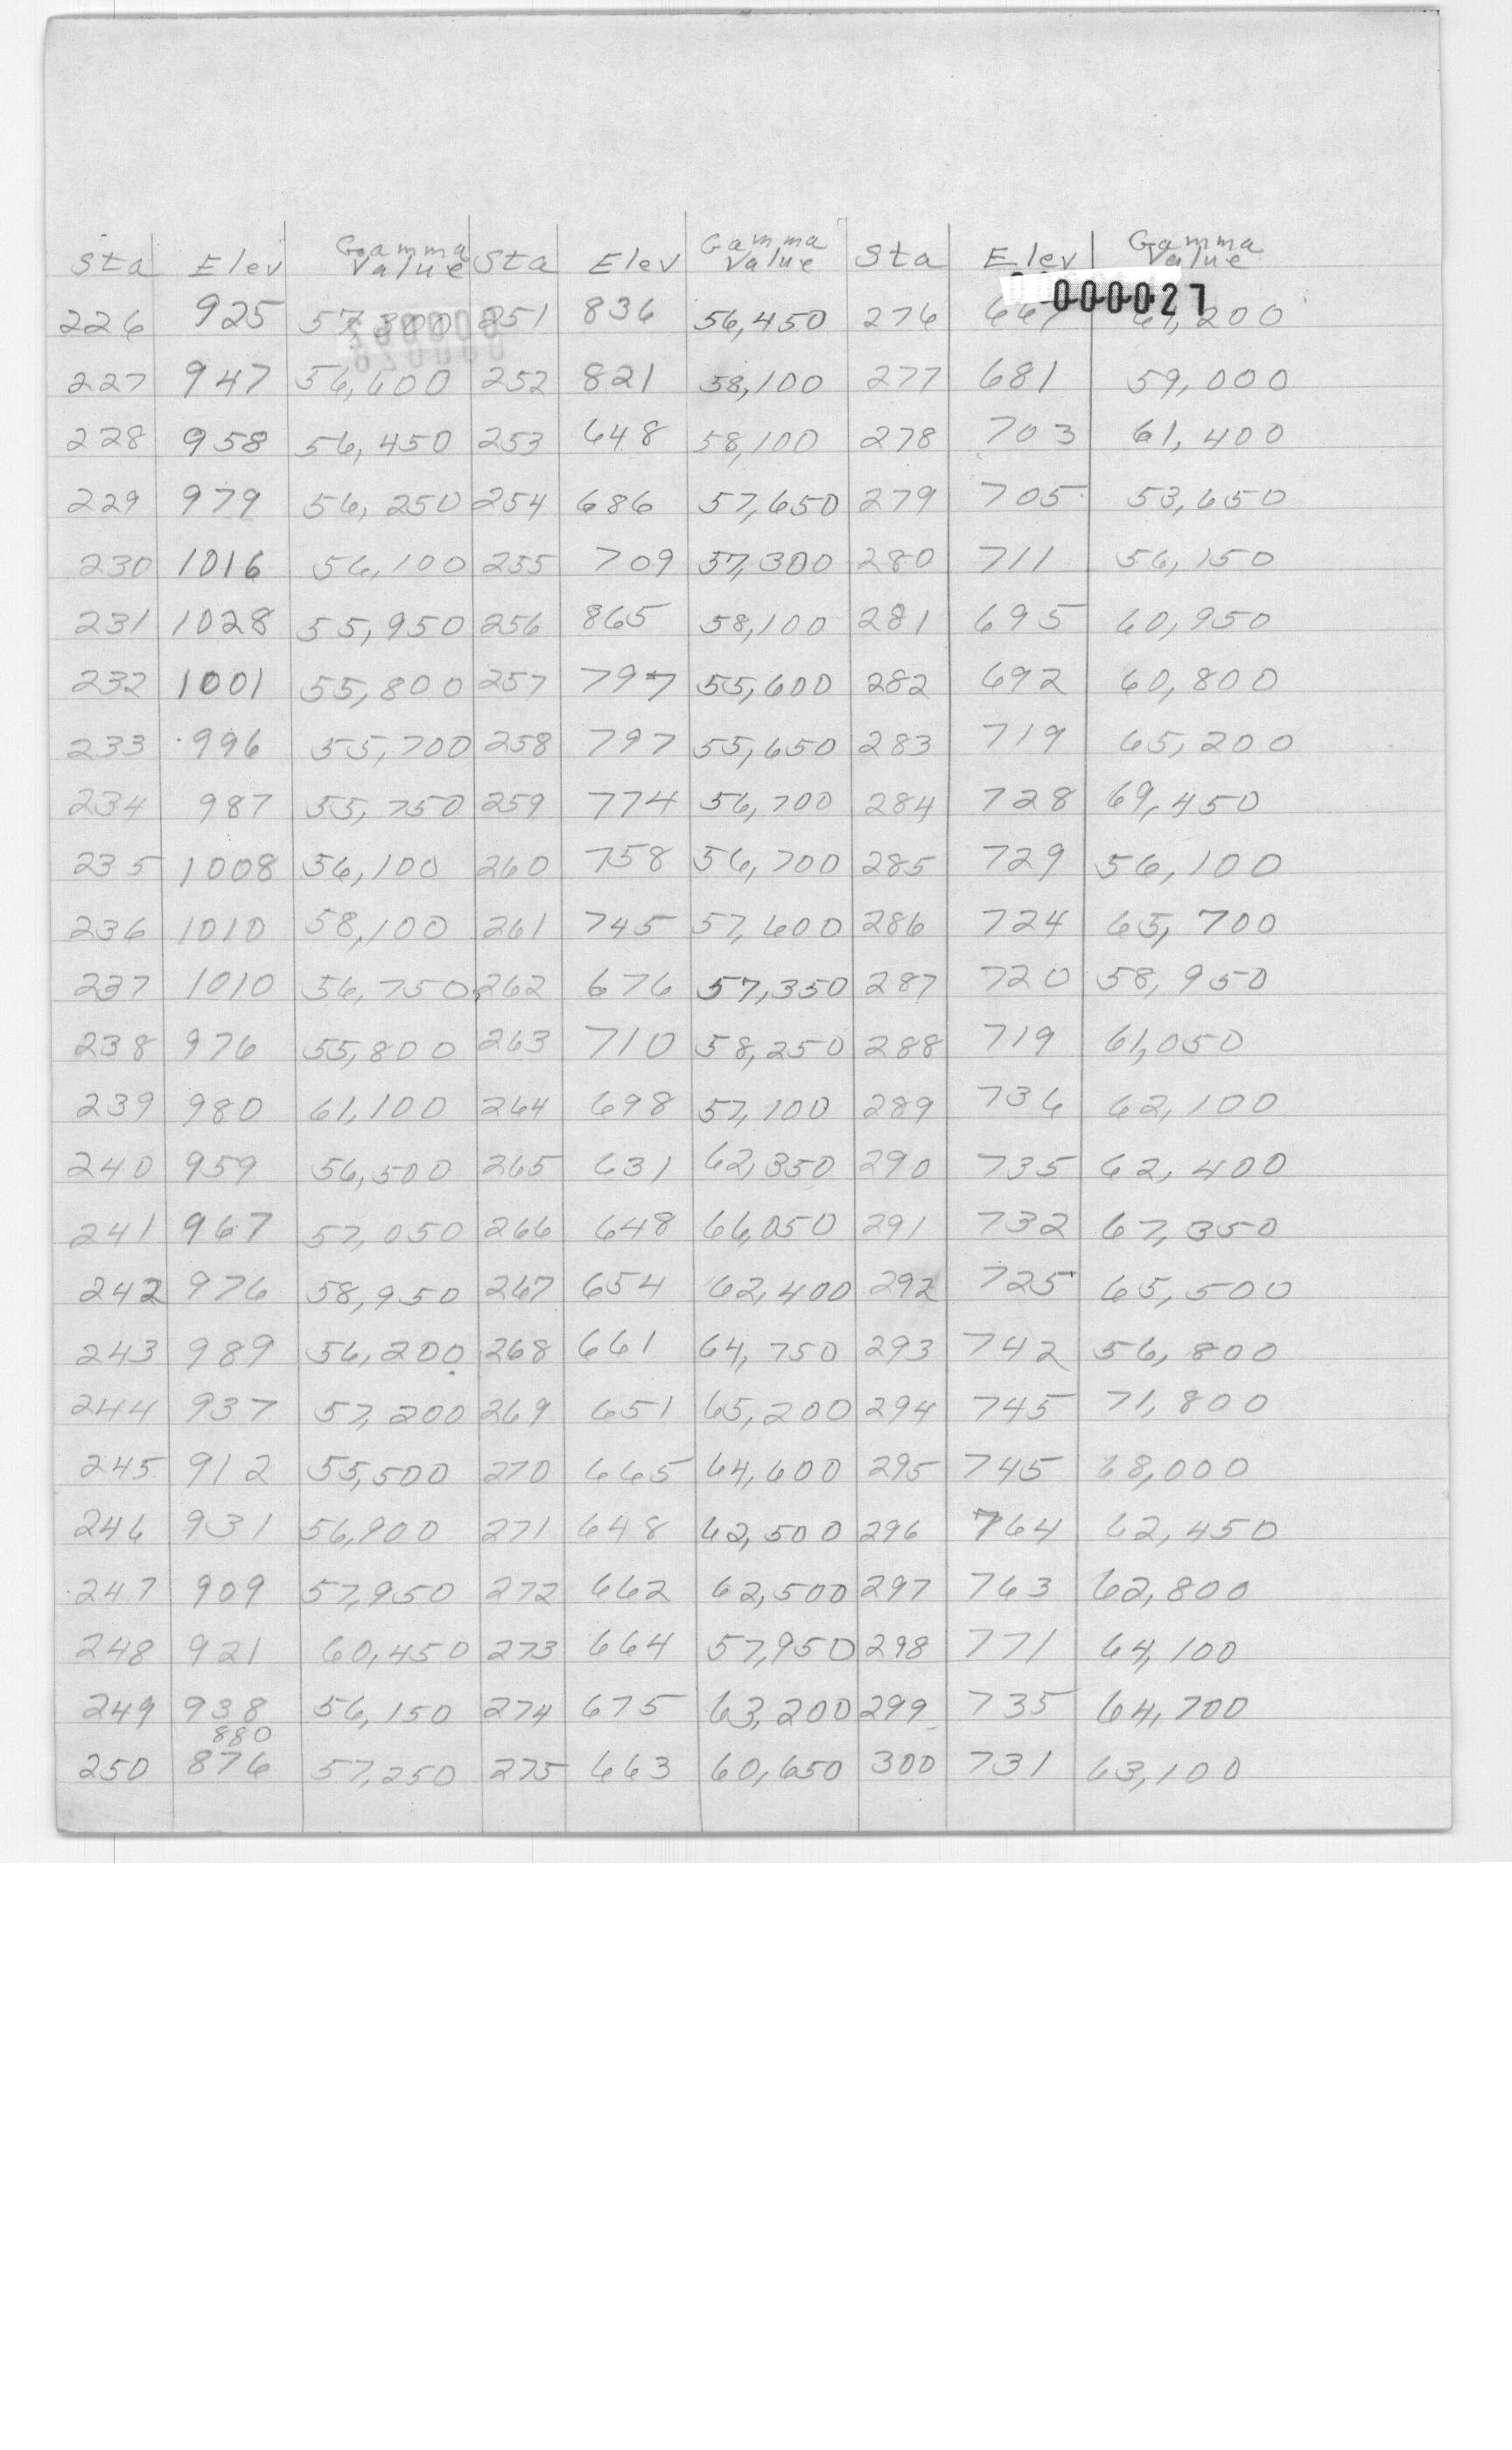 Sta Elev Gamma Value Sta Elev Gamma Value Sta Elev Gamma Value
000027
226 925 251 836 56,450 276
227 947 56,600 252 821 58,100 277 681 59,000
228 958 56,450 253 648 58,100 278 703 61,400
229 979 56,250 254 686 57,650 279 705 53,650
230 1016 56,100 255 709 57,300 280 711 56,150
231 1028 55,950 256 865 58,100 281 695 60,950
232 1001 55,800 257 797 55,600 282 692 60,800
233 996 55,700 258 797 55,650 283 719 65,200
234 987 55,750 259 774 56,700 284 728 69,450
235 1008 56,100 260 758 56,700 285 729 56,100
236 1010 58,100 261 745 57,600 286 724 65,700
237 1010 56,750 262 676 57,350 287 720 58,950
238 976 55,800 263 710 58,250 288 719 61,050
239 980 61,100 264 698 57,100 289 736 62,100
240 959 56,500 265 631 62,350 290 735 62,400
241 967 57,050 266 648 66,050 291 732 67,350
242 976 58,950 267 654 62,400 292 725 65,500
243 989 56,200 268 661 64,750 293 742 56,800
244 937 57,200 269 651 65,200 294 745 71,800
245 912 55,500 270 665 64,600 295 745 68,000
246 931 56,900 271 648 62,500 296 764 62,450
247 909 57,950 272 662 62,500 297 763 62,800
248 921 60,450 273 664 57,950 298 771 64,100
249 938 56,150 274 675 63,200 299 735 64,700
880
250 876 57,250 275 663 60,650 300 731 63,100